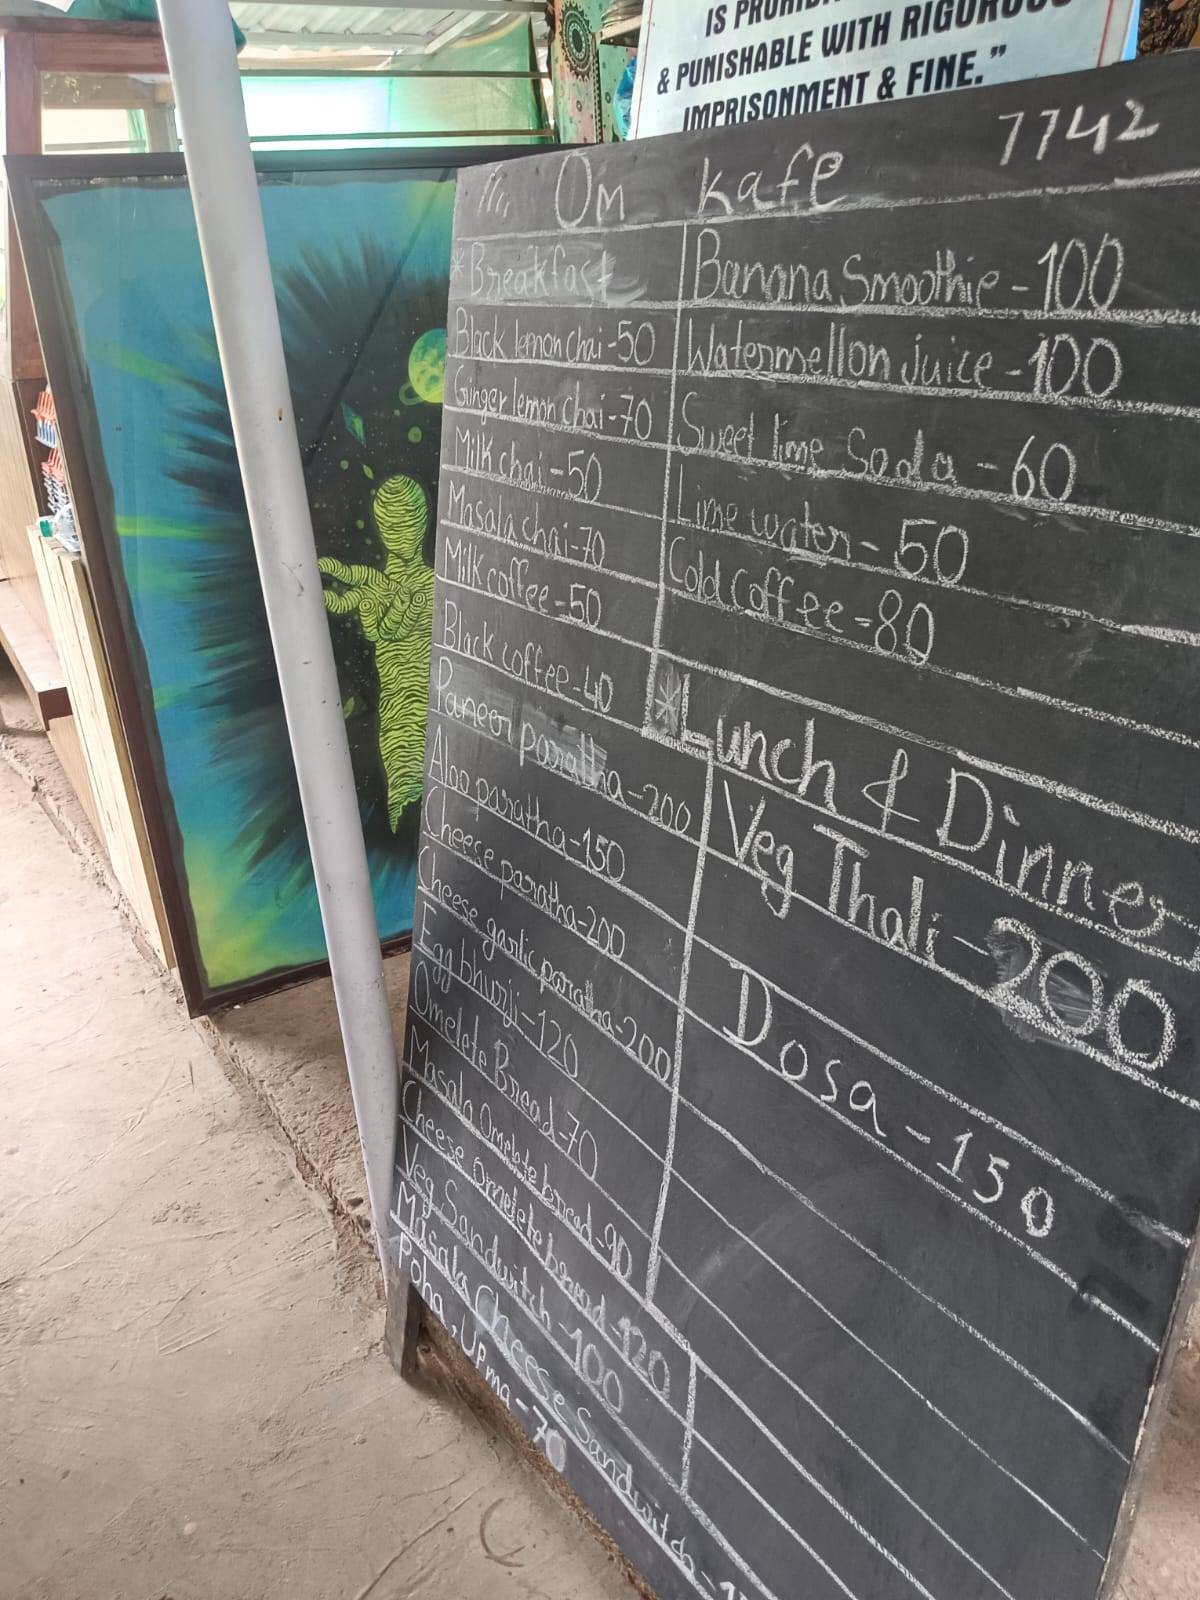 IS PROHIB
& PUNISHABLE WITH RIGOROUS
IMPRISONMENT & FINE."
Om kafe 7742
*Breakfast
Black lemon chai-50
Ginger lemon chai-70
Milk chai-50
Masala chai-70
Milk coffee-50
Black coffee-40
Paneer paratha-200
Aloo paratha-150
Cheese paratha-200
Cheese garlic paratha-200
Egg bhurji-120
Omelete Bread-70
Masala Omelete bread-90
Cheese Omelete bread-120
Veg Sandwitch-100
Masala Cheese Sandwitch-
Poha, Upma-70
Banana Smoothie-100
Watermellon juice-100
Sweet lime Soda-60
Lime water-50
Cold Coffee-80
*Lunch & Dinner
Veg Thali-200
Dosa-150